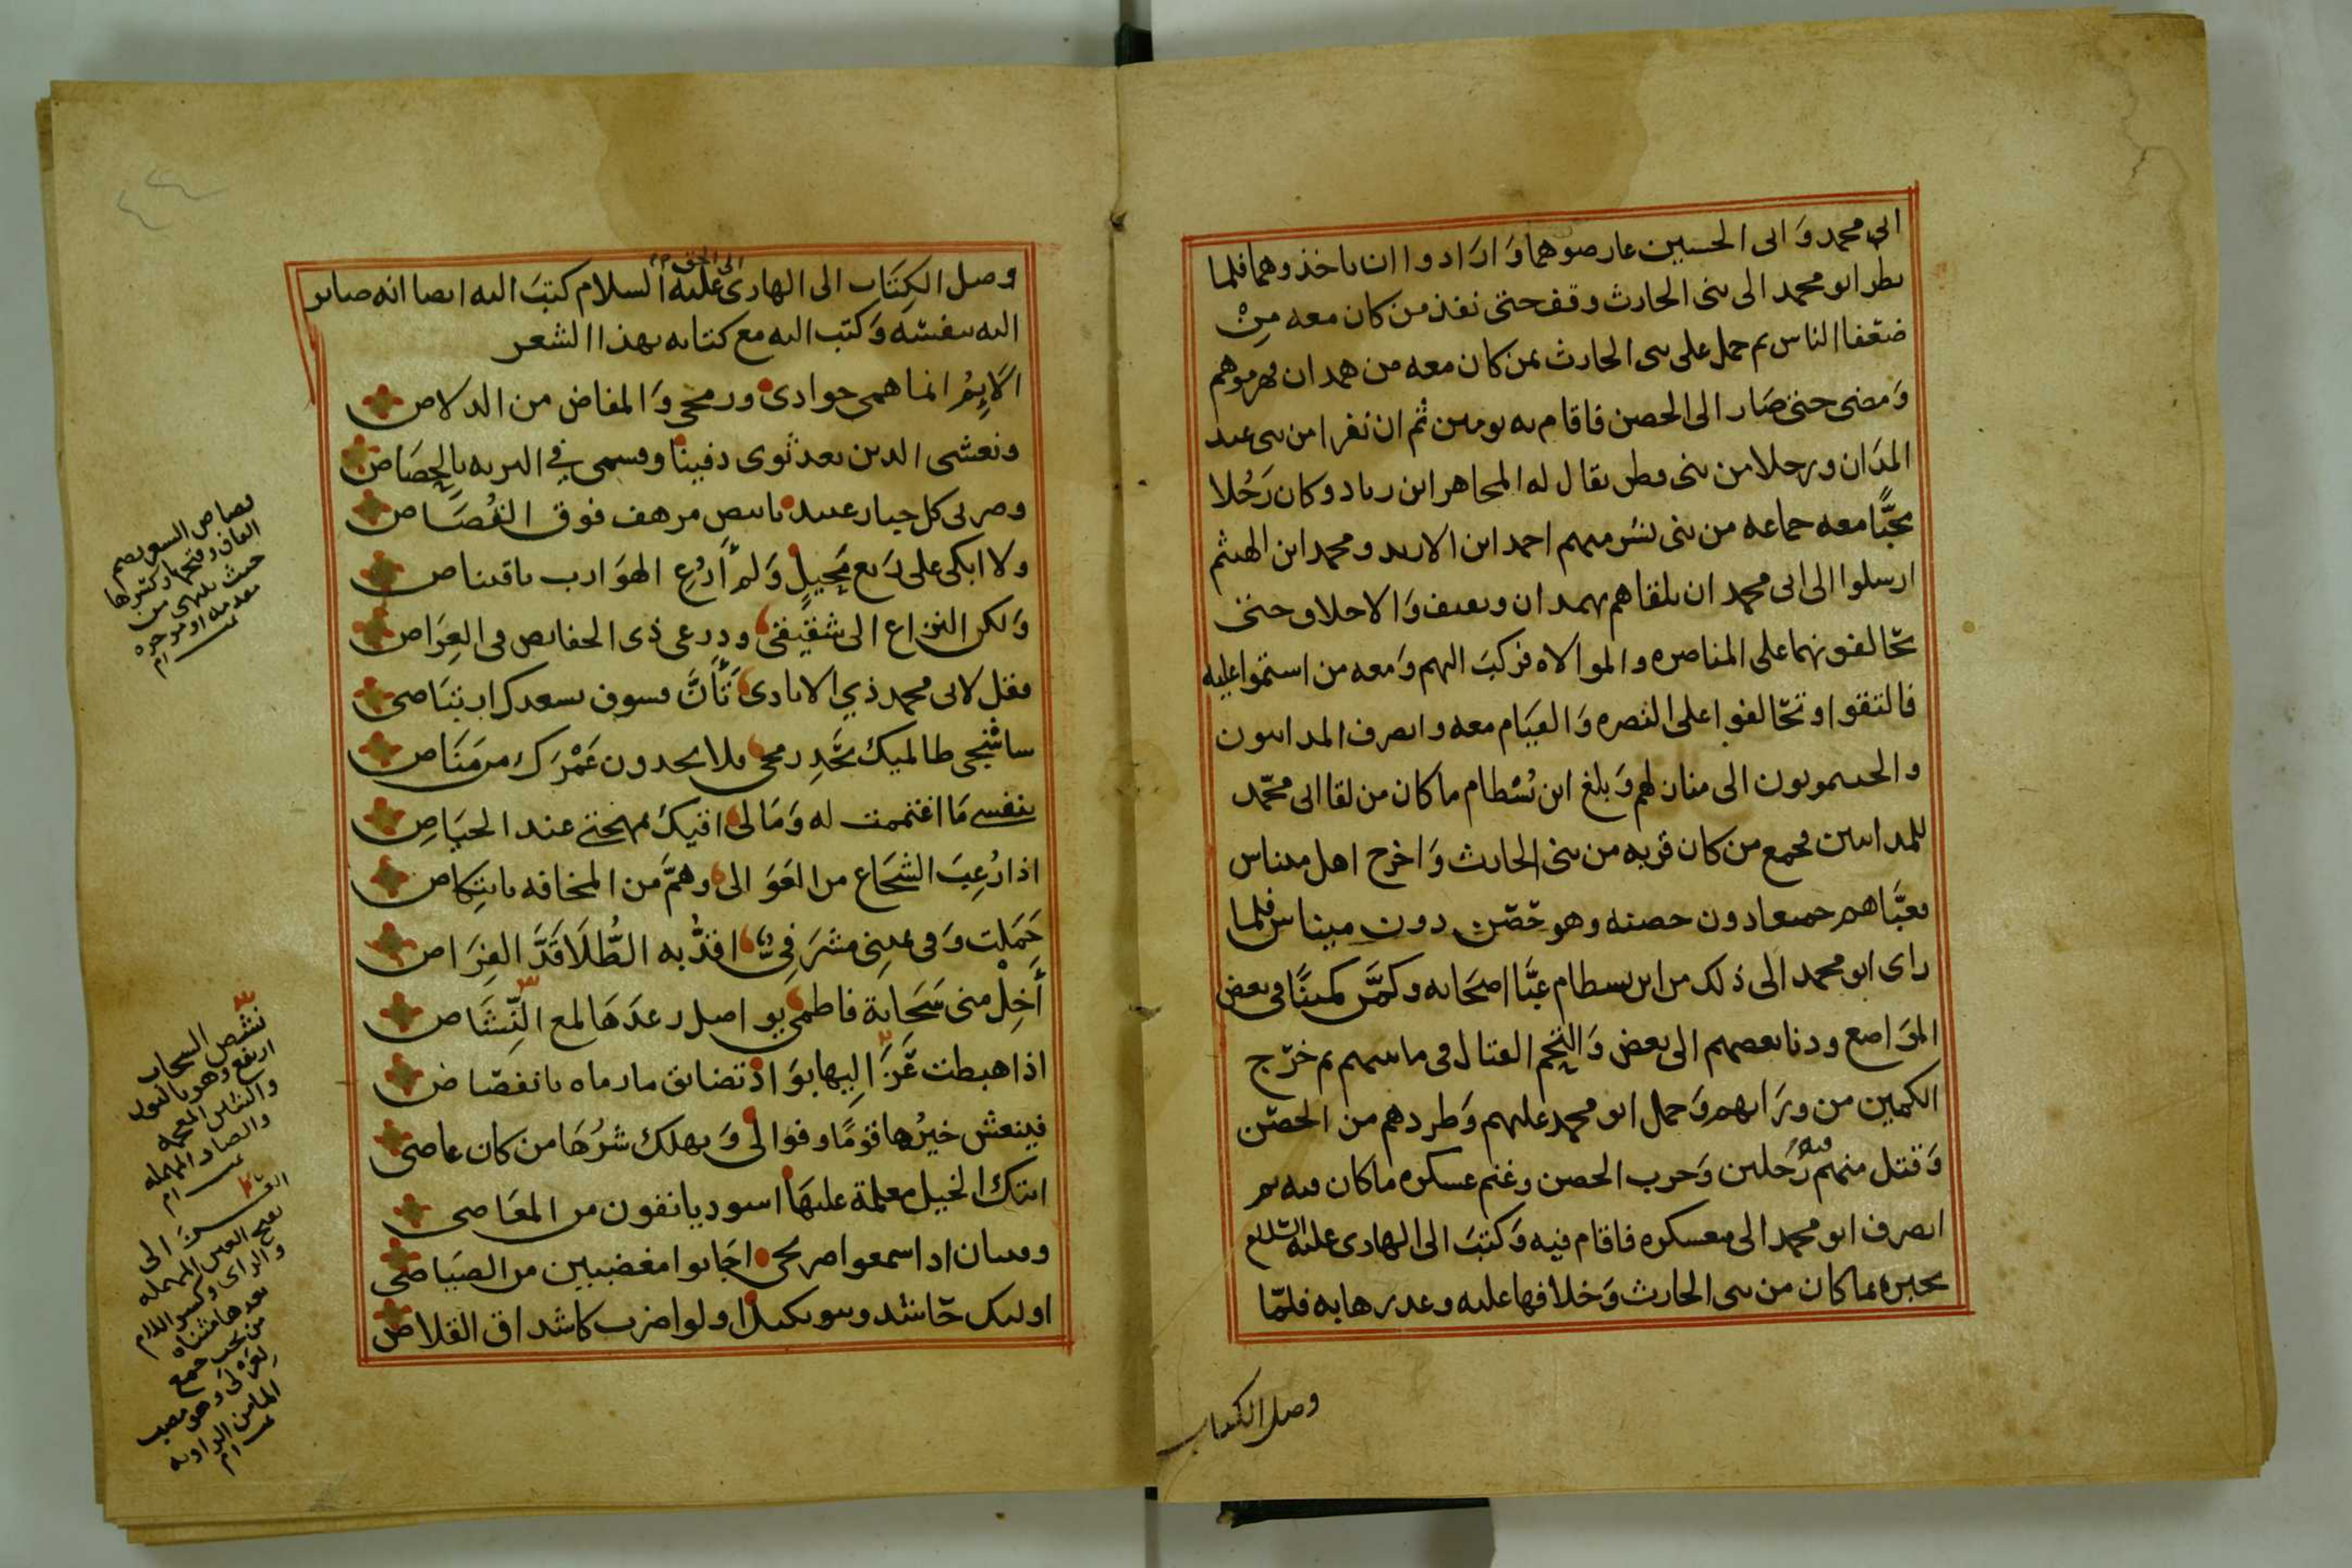 الى محمد وَالى الحسين عارضوهما وَارَادوا ان ياخذوهما فلما
نظر ابو محمد الى بنى الحارث وقف حتى نفذ من كان معه مِنْ
ضعفا الناس ثم حمل على بنى الحارث بمن كان معه من همدان فهزموهم
وَمضى حتى صَار الى الحصن فاقام به يومين ثم ان نفرا من بنى عبد
المدَان ورجلا من بنى قطن يقال له المجاهر ابن زياد وكان رَجُلا
معه جماعه من بنى منهم احمد ابن ومحمد ابن الهيثم
ارسلوا الى ابى محمد ان يلقاهم بهمدان وثقيف وَالاحلاف حتى
تحالفونهما على المناصره والموالاه فركبَ اليهم وَمعه من استموا عليه
فالتقوا وتحالفوا على النصره وَالقيَام معه وانصرف المدانيون
الى منازلهم وَبلغ ابن بُسْطام ما كان من لقا ابى محمّد
للمدانيين فجمع من كان قربه من بنى الحارث وَاخرج اهل ميناس
فعبَّاهم جميعا دون حصنه وهو حصن دون ميناس فلما
راى ابو محمد الى ذلك من ابن بسطام عبَّا اصحَابه وكمَّن كمينًا فى بعض
الموَاضع ودنا بعضهم الى بعض وَالتحم القتال فى ما بينهم ثم خرَج
الكمين من ورَائهم وَحمل ابو محمد عليهم وَطردهم من الحصن
وَقتل منهم فيه رَجلين وَخرب الحصن وغنم عسكره ما كان فيه ثم
انصرف ابو محمد الى معسكره فاقام فيه وَكتبَ الى الهادى عليه السلام
يخبره بما كان من بنى الحارث وَخلافها عليه وغدرها به فلمّا
وصل الكتاب
وصل الكِتَاب الى الهادى الى الحق عليه السلام كتبَ اليه ايضا انه صاير
اليه بنفسه وَكتب اليه مع كتابه بهذا الشعر
الاَ انما همى جوادى ورمحى وَالمفاض من الدلاص
ونعشى الدين بعد ثوى دفينًا وقسمى في البريه بالحِصَاص
وضربى كل جبار عنيد بابيض مرهف فوق القُصَاص
ولا ابكى على رَبع مَحِيلٍ وَلم اَرُعِ الهوَارب باقتناص
وَلكن النزاع الى شقيقى ودرعى ذى الحفائص فى العِرَاص
فقل لابى محمد ذي الايادى تَأَنَّ فسوف يسعدك ارتبَاصى
سَاشْجى ظالميك بحَدِ رمحى فلا يجدون عَمْرَك من مَنَاص
بنفسى مَا اغتممت له وَمَالى اقيك بمهجتى عند الحيَاصِ
اذا رُعِبَ الشجَاع من العَوَالى وهمَّ من المخافه بانتِكاص
حَمَلت وَفى يمينى مشرَفِيٌّ اقدُّ به الطُّلَا قَدَّ الفِرَاص
أَخِلْ منى سَحَابة فاطمى يواصل رعدَهَا لمع النِّشَاص
اذا هبطت عَزَاليها بوَادٍ تضايق مارماه بانفصَاص
فينعش خيرُها قومًا وفوا لى وَيهلك شرُهَا من كان عاصى
اتتك الخيل معلمة عليهَا اسود يانفون من المعَاصى
وفتيان اذا سمعوا صريخى اجَابوا مغضبين من الصيَاصى
اوليك حَاشد وبنو بكيل اولوا ضرب كاشداق القلاص
قصاص الشعر بضم
القاف وفتحها وكسرها
حيث ينتهى من
مقدمه او موخره
نشص السحاب
ارتفع وهو بالنون
والشين المعجمه
والصاد المهمله
العزالى
بفتح العين المهمله
والزاى وكسر اللام
بعدها مثناه
من تحت جمع
عزلى وهو مصب
الما من الراويه